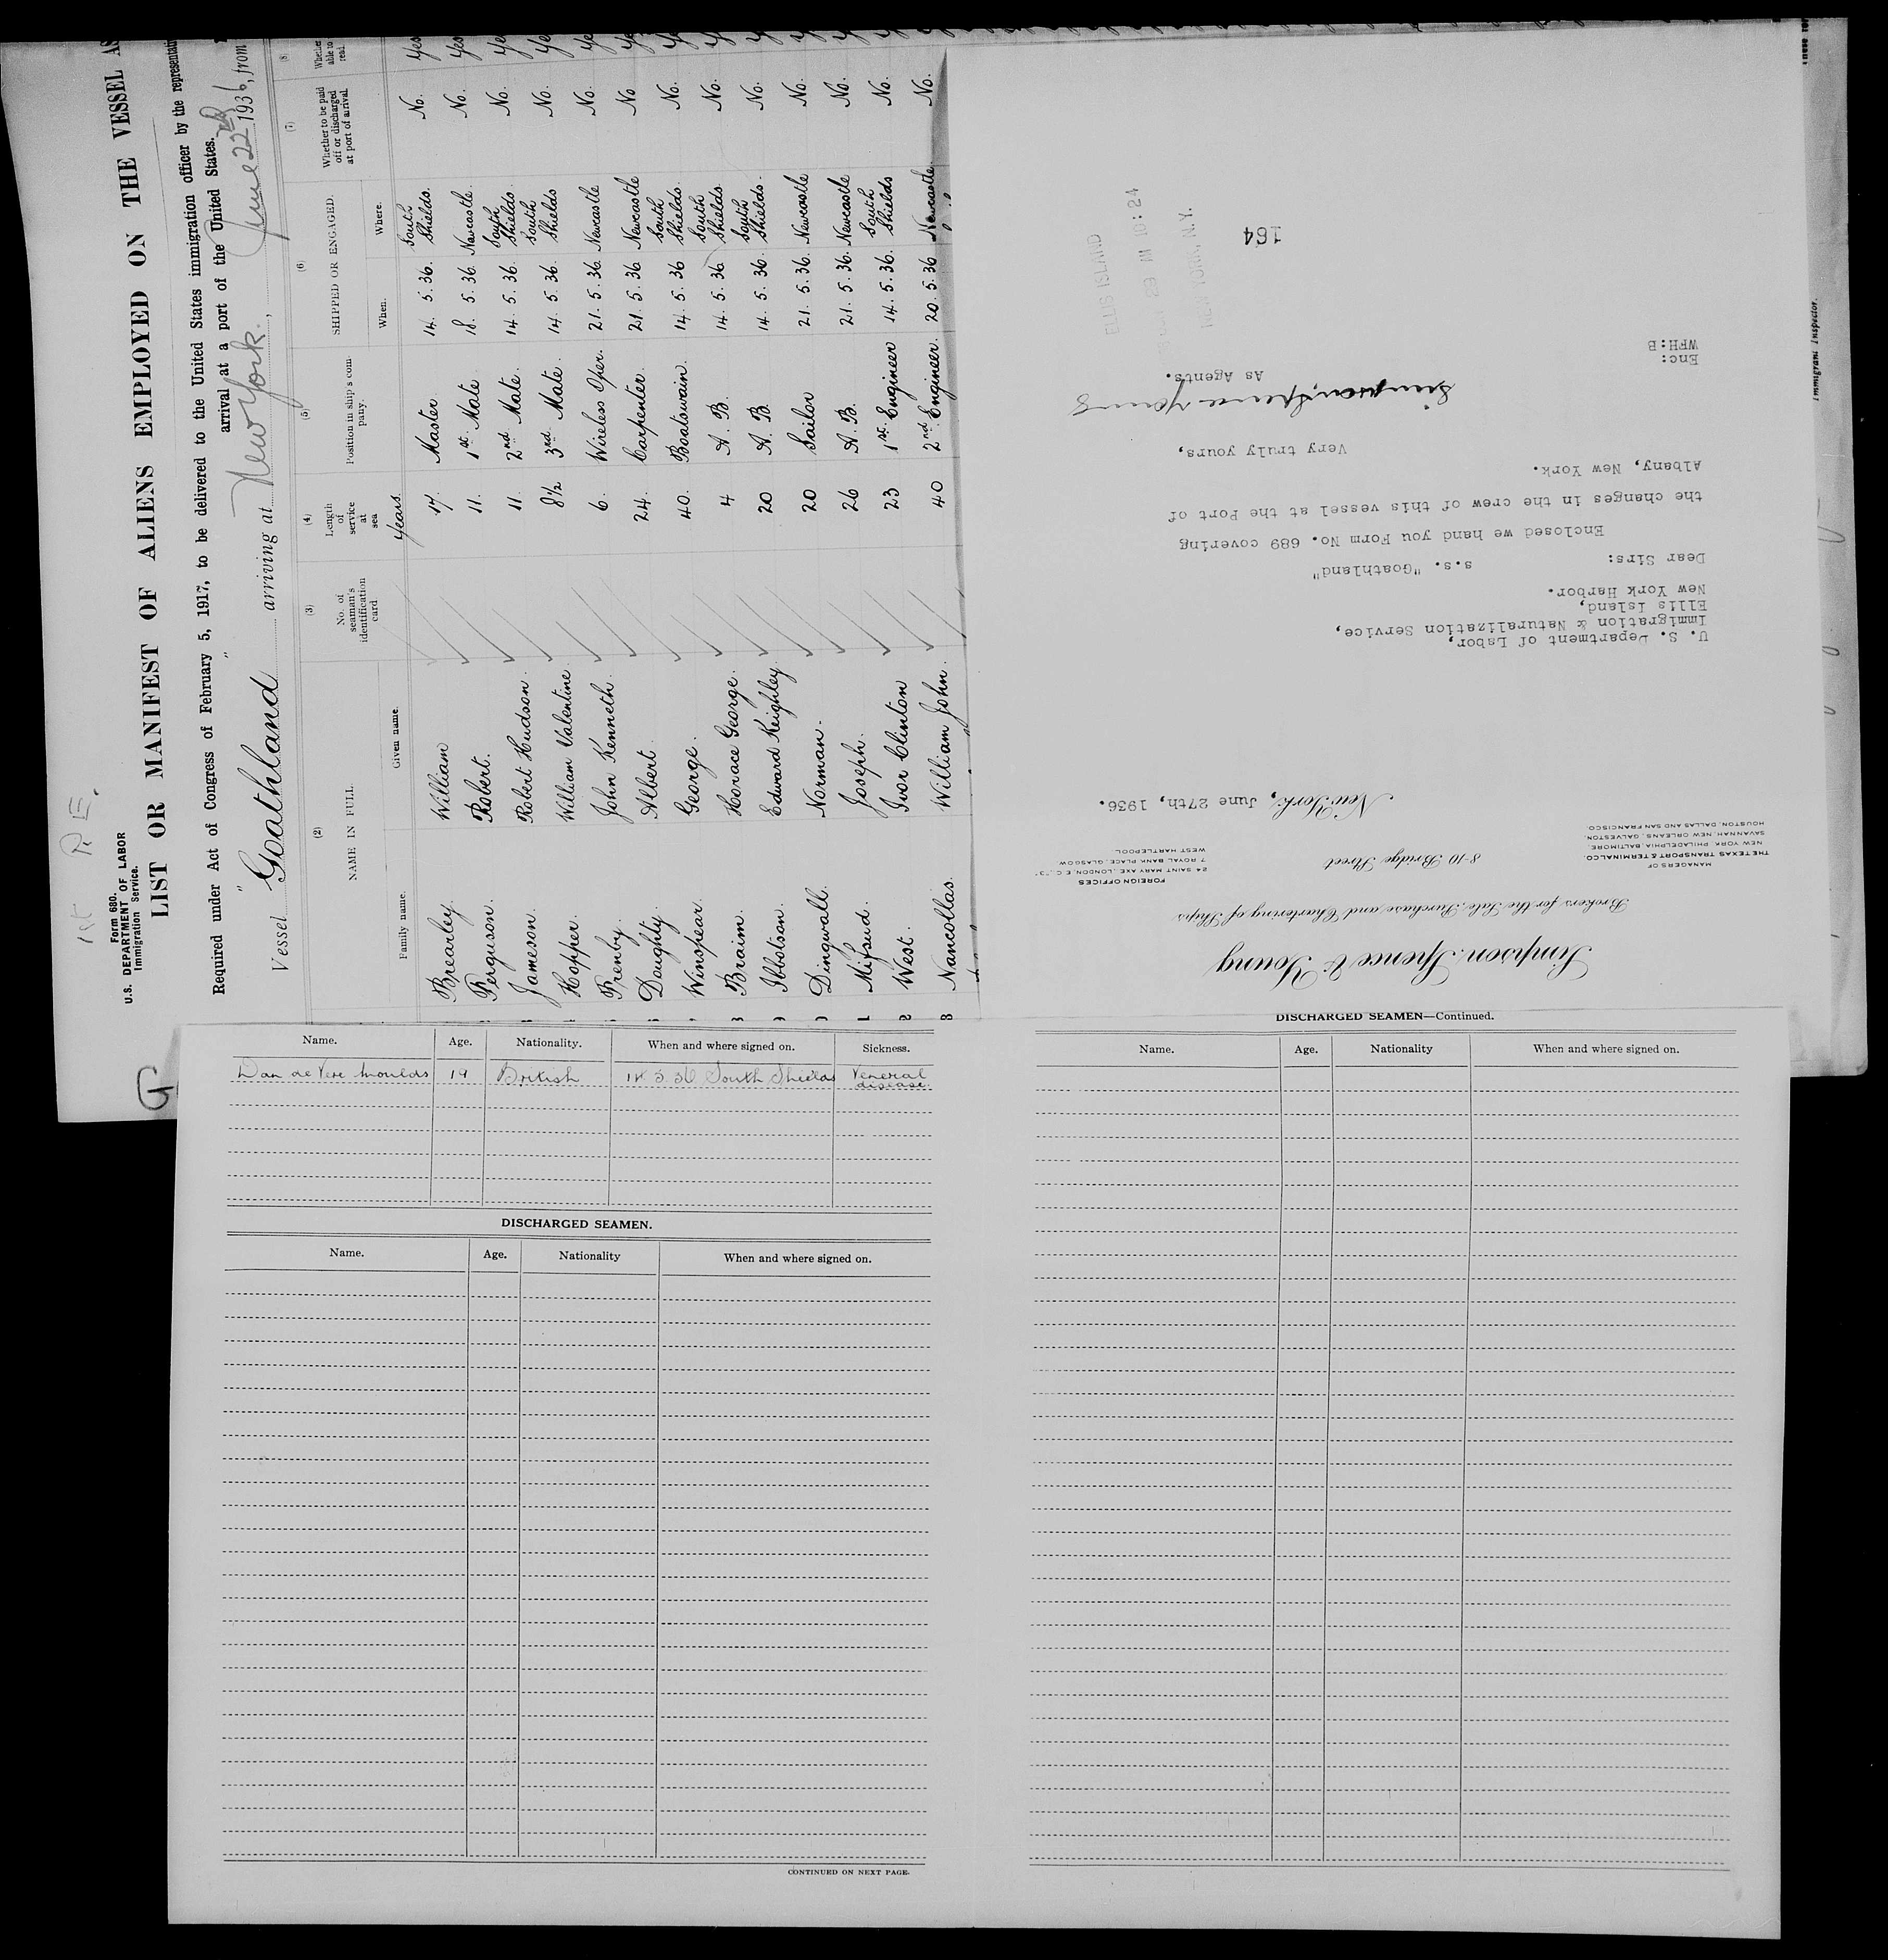 1st P.E.
Form 680.
U.S. DEPARTMENT OF LABOR
Immigration Service.
LIST OR MANIFEST OF ALIENS EMPLOYED ON THE VESSEL AS
Required under Act of Congress of February 5, 1917, to be delivered to the United States immigration officer by the representati
arrival at a port of the United States.
Vessel "Goathland" arriving at New York, June 22nd 1936, from
(2) (3) (4) (5) (6) (7) (8)
NAME IN FULL No. of seaman's identification card Length of service at sea Position in ship's company. SHIPPED OR ENGAGED. Whether to be paid off or discharged at port of arrival. Whether able to read.
Family name. Given name. When. Where.
Years.
Brearley William 17. Master 14. 5. 36. South Shields. No. Yes
Ferguson. Robert. 11. 1st Mate. 18. 5. 36. Newcastle. No. Yes
Jameson. Robert Hudson. 11. 2nd Mate. 14. 5. 36. South Shields. No. Ye
Hopper. William Valentine 8½ 3rd Mate. 14. 5. 36. South Shields No. Ye
Frenby. John Kenneth. 6. Wireless Oper. 21. 5. 36. Newcastle No. Ye
Doughty. Albert. 24. Carpenter. 21. 5. 36 Newcastle No Ye
Winspear. George. 40. Boatswain. 14. 5. 36 South Shields. No. Ye
8 Braim. Horace George. 4 A. B. 14. 5. 36 South Shields No. Y
9 Ibbotson. Edward Keighley. 20 A. B. 14. 5. 36. South Shields. No. Y
0 Dingwall. Norman. 20 Sailor 21. 5. 36. Newcastle No. Y
1 Mifsud. Joseph. 26 A. B. 21. 5. 36. Newcastle No. Y
2 West. Ivor Clinton 23 1st Engineer 14. 5. 36. South Shields No. Y
3 Nancollas. William John. 40 2nd Engineer. 20. 5. 36 Newcastle. No.
G
Simpson, Spence & Young
Brokers for the Sale, Purchase and Chartering of Ships
MANAGERS OF
THE TEXAS TRANSPORT & TERMINAL CO.
NEW YORK, PHILADELPHIA, BALTIMORE,
SAVANNAH, NEW ORLEANS, GALVESTON,
HOUSTON, DALLAS AND SAN FRANCISCO.
8-10 Bridge Street
FOREIGN OFFICES
24 SAINT MARY AXE, LONDON, E.C. "3"
7 ROYAL BANK PLACE, GLASGOW
WEST HARTLEPOOL
New York, June 27th, 1936.
U. S. Department of Labor,
Immigration & Naturalization Service,
Ellis Island,
New York Harbor.
Dear Sirs: s.s. "Goathland"
Enclosed we hand you Form No. 689 covering
the changes in the crew of this vessel at the Port of
Albany, New York.
Very truly yours,
Simpson, Spence & Young
As Agents.
Enc:
WFH:B
164
ELLIS ISLAND
29 AM 10:24
NEW YORK, N.Y.
Immigrant Inspector.
Name. Age. Nationality. When and where signed on. Sickness.
Dan de Vere Moulds 19 British 14 5 36 South Shields Veneral
disease.
DISCHARGED SEAMEN.
Name. Age. Nationality When and where signed on.
CONTINUED ON NEXT PAGE.
DISCHARGED SEAMEN—Continued.
Name. Age. Nationality When and where signed on.